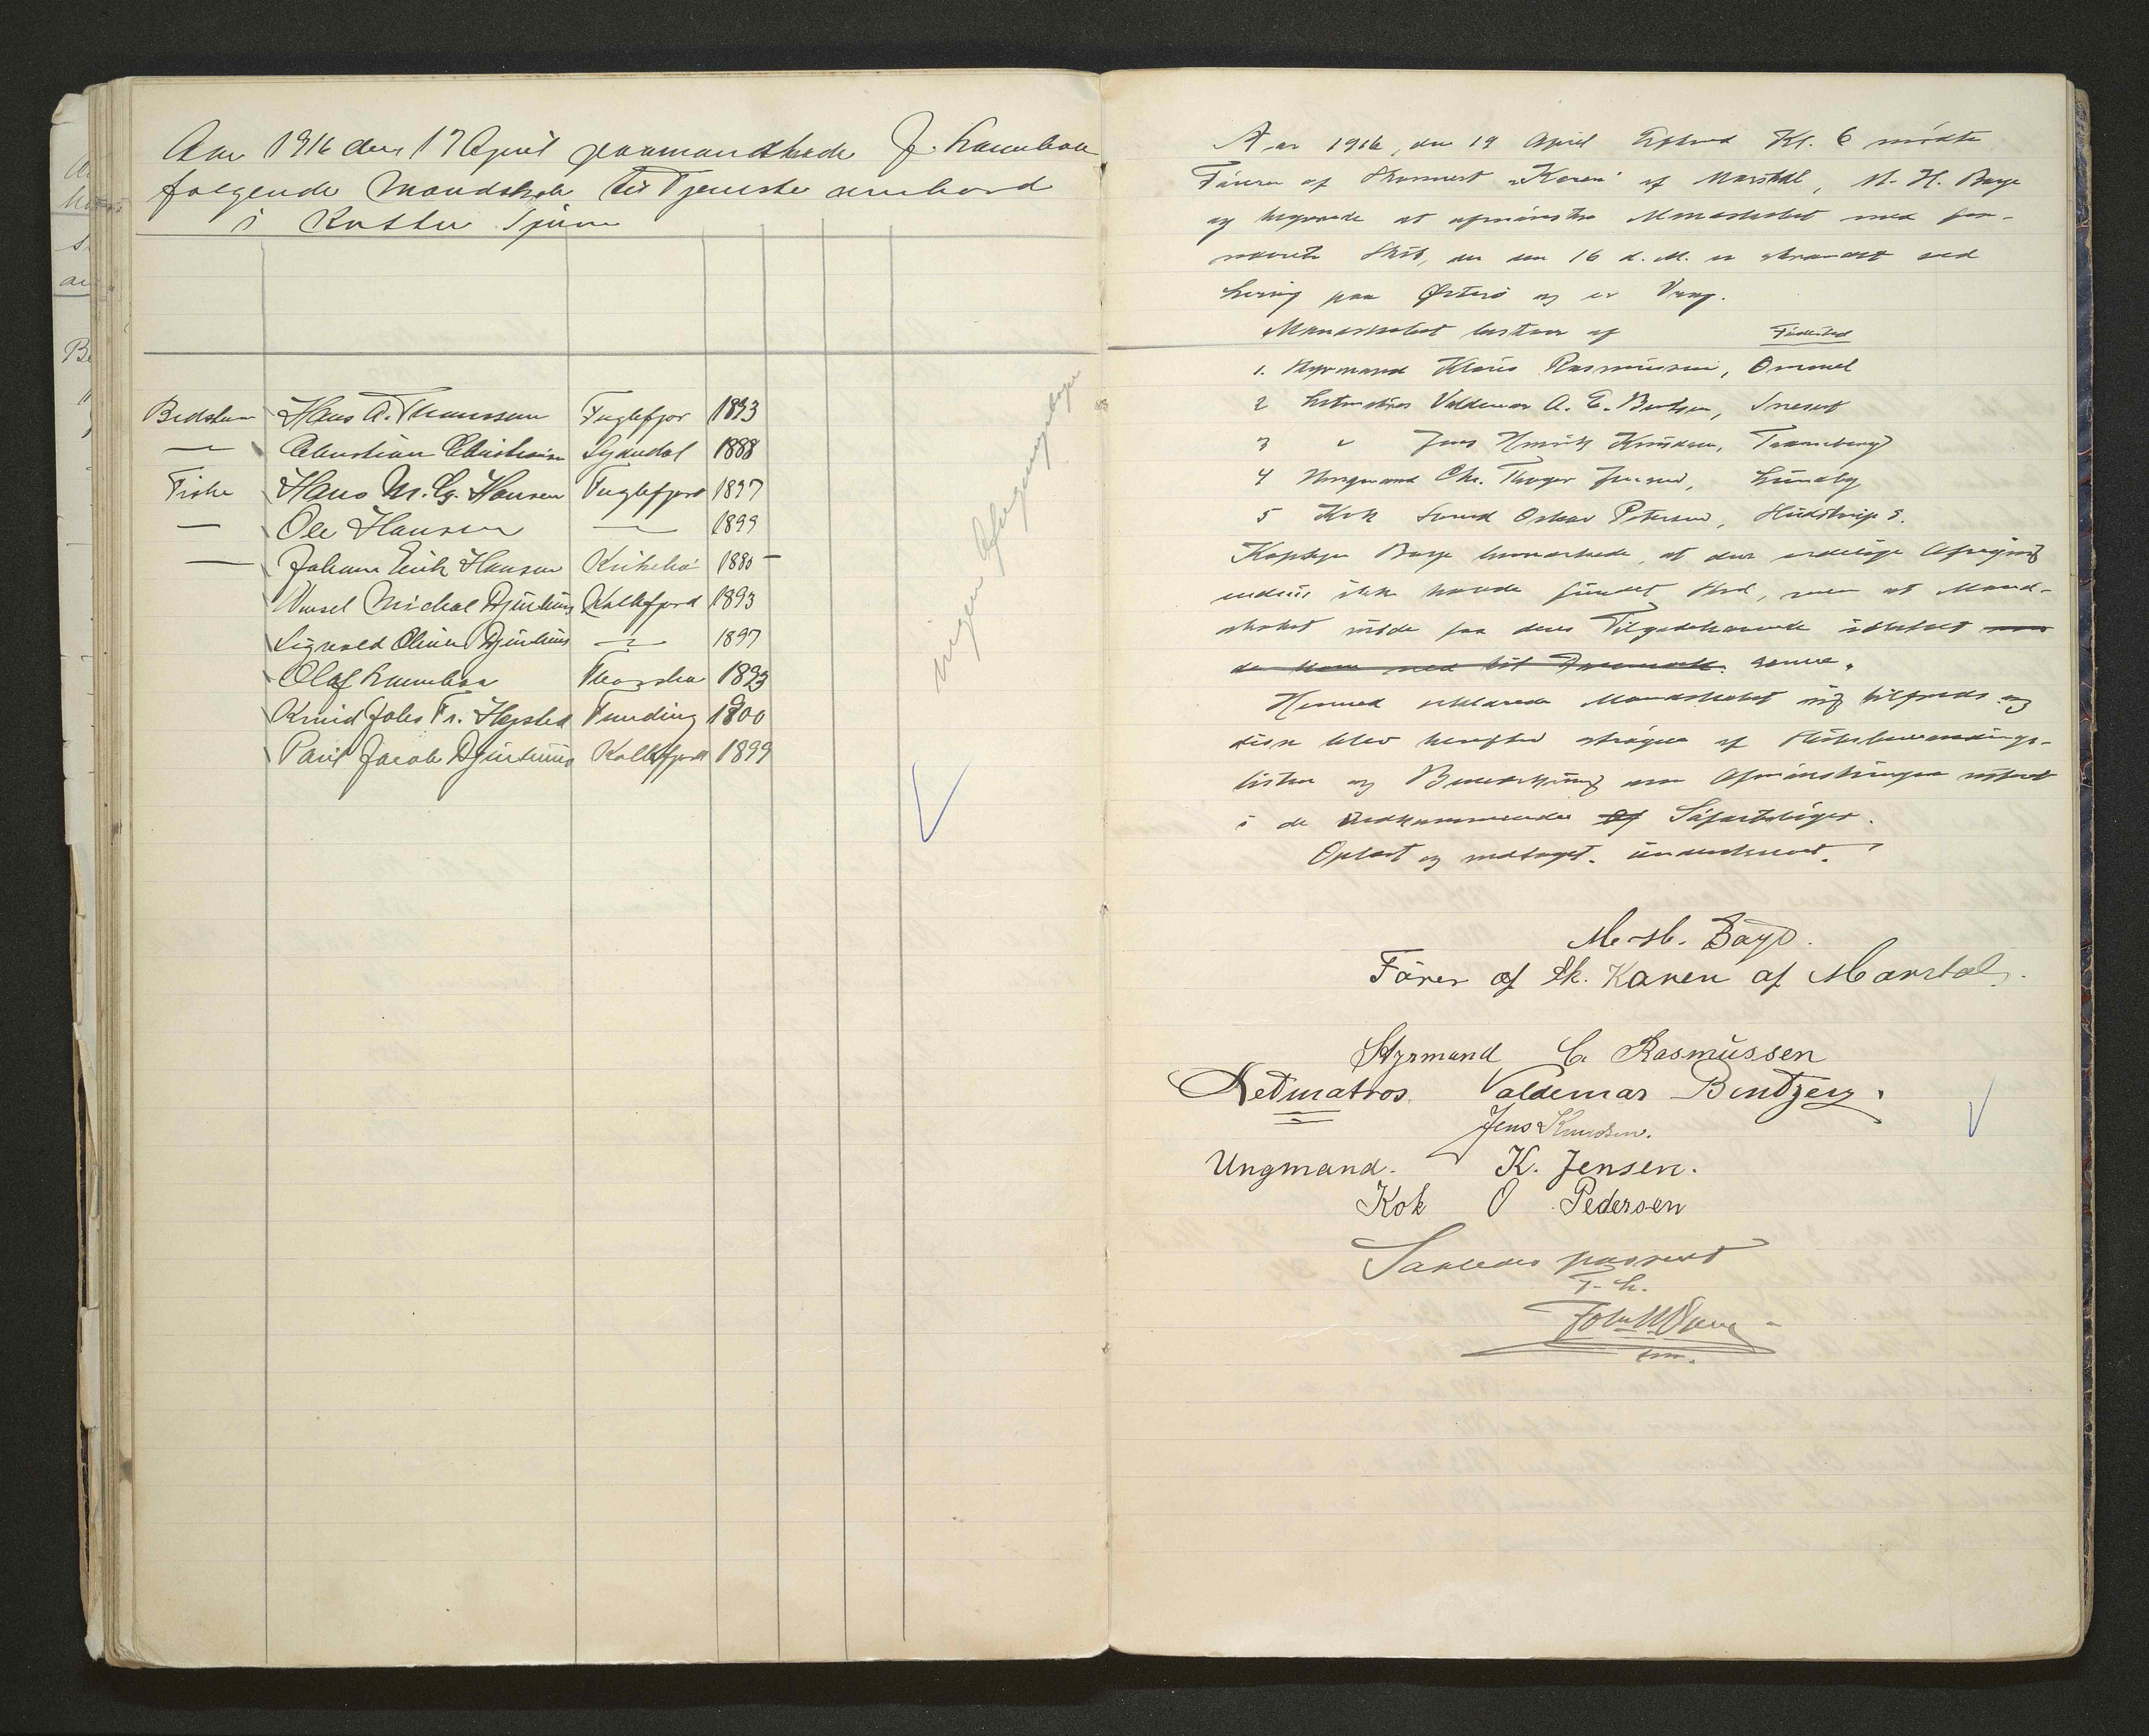 Aar 1916 den 17 April paamandskede J. Lamhau
følgende Mandskab til Tjeneste ombord
i Kutter
Bedstem Hans A. Thomsen Fuglefjor 1893
— Christian Christiansen Sydradal 1888
Fisker Hans M. Hansen Fuglefjord 1897
— Ole Hansen — 1899
— Johan Erik Hansen Kirkebø 1880 –
Michal Djurhuus Kollefjord 1893
Sigvald Oliver Djurhuus — 1897
Olaf Lamhau Thorshav 1893
Knud Johs Fr. Højsted Funding 1800
Paul Jacob Djurhuus Kollefjord 1899
ingen Afregningsbøger
Aar 1916, den 19 April Eftmd Kl. 6 mødte
Fører af Skonnert "Karen" af Marstal, M. H. Baye
og begærede at afmønstre Mandskabet med for-
nævnte Skib, der den 16 d. M. er strandet ved
paa Østerø og er Vrag.
Mandskabet bestaar af Fødested
1. Styrmand Klaus Rasmussen, Ommel
2 Letmatros Valdemar A. E. Bentzen,
3 " Jens Henrik Knudsen, Tranebjerg
4 Ungmand Chr. Jensen, Lundby
5 Kok Svend Oskar Petersen,
Kaptajn Baye bemærkede, at den endelige Afregning
endnu ikke havde fundet Sted, men at Mand-
skabet vilde faa deres Tilgodehavende
Hermed erklærede Mandskabet sig tilfreds og
disse blev herefter strøgne af Skibsbemandings-
listen og Bemærkning om Afmønstringen noteret
i de Vedkommendes Søfartsbøger.
Oplæst og vedtaget. underskrevet.
M. H. Baye.
Fører af Sk. Karen af Marstal.
Styrmand C. Rasmussen
Letmatros Valdemar Bentzen.
Jens Knudsen.
Ungmand. K. Jensen.
Kok O Pedersen
Saaledes passeret